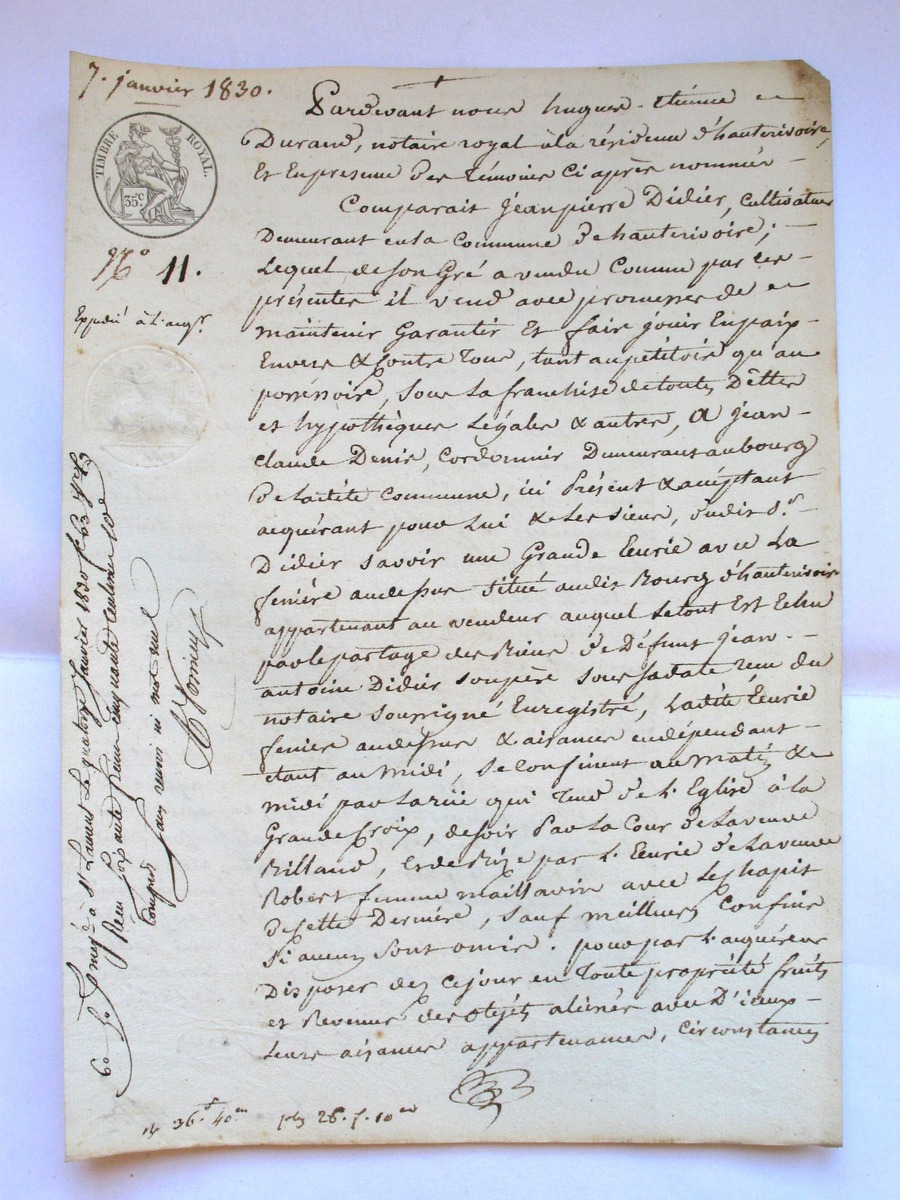 7. janvier 1830.
TIMBRE ROYAL.
35c.
No 11.
Expédié à l'acqr.
Pardevant nous hugues-étienne
Durand, notaire royal à la résidence d'hauterivoire,
Et En presence des témoins Ci après nommés
Comparait Jeanpierre Didier, Cultivateur
Demeurant en la Commune d'hauterivoire;
Lequel de son Gré a vendu Comme par ces
présentes il vend avec promesses de
maintenir Garantir Et faire jouir En paix
Envers & Contre Tous, tant au pétitoire qu'au
possessoire, sous la franchise de toutes Dettes
et hypothèques Légales & autres, A Jean-
claude Denis, Cordonnier Demeurant au bourg
de ladite Commune, ici Présent & acceptant
acquérant pour Lui & Les siens, dudit Sr.
Didier savoir une Grande Eurie avec La
fenière au dessus situé audit Bourg d'hauterivoire
appartenant au vendeur auquel Le tout Est Echu
par le partage des Biens de Défunt Jean-
antoine Didier son père sous sa date reçu du
notaire soussigné Enregistré, Ladite Eurie
fenière au dessus & aisances en dépendant
étant au midi, se Confinent au matin &
midi par la rüe qui Tend de L'Eglise à la
Grande Croix, de soir Par La Cour de La veuve
Billand, et de Bize par L'Eurie de La veuve
Robert femme maillavin avec Le chapit
de Cette Dernière, sauf meilleurs Confins
si aucuns sont omis. pour par L'acquéreur
Disposer dez Ce jour en Toute propriété fruits
et Revenus des Objets aliénés avec D'iceux
Leurs aisances appartenances, Circonstances
Enregé à St Laurent Le quatorze Janvier 1830 fo 63
Reçu soixante francs cinquante Centimes 10e
Compris sans renvoi ni mot nul
36.f 40.cm
26.f. 10cm